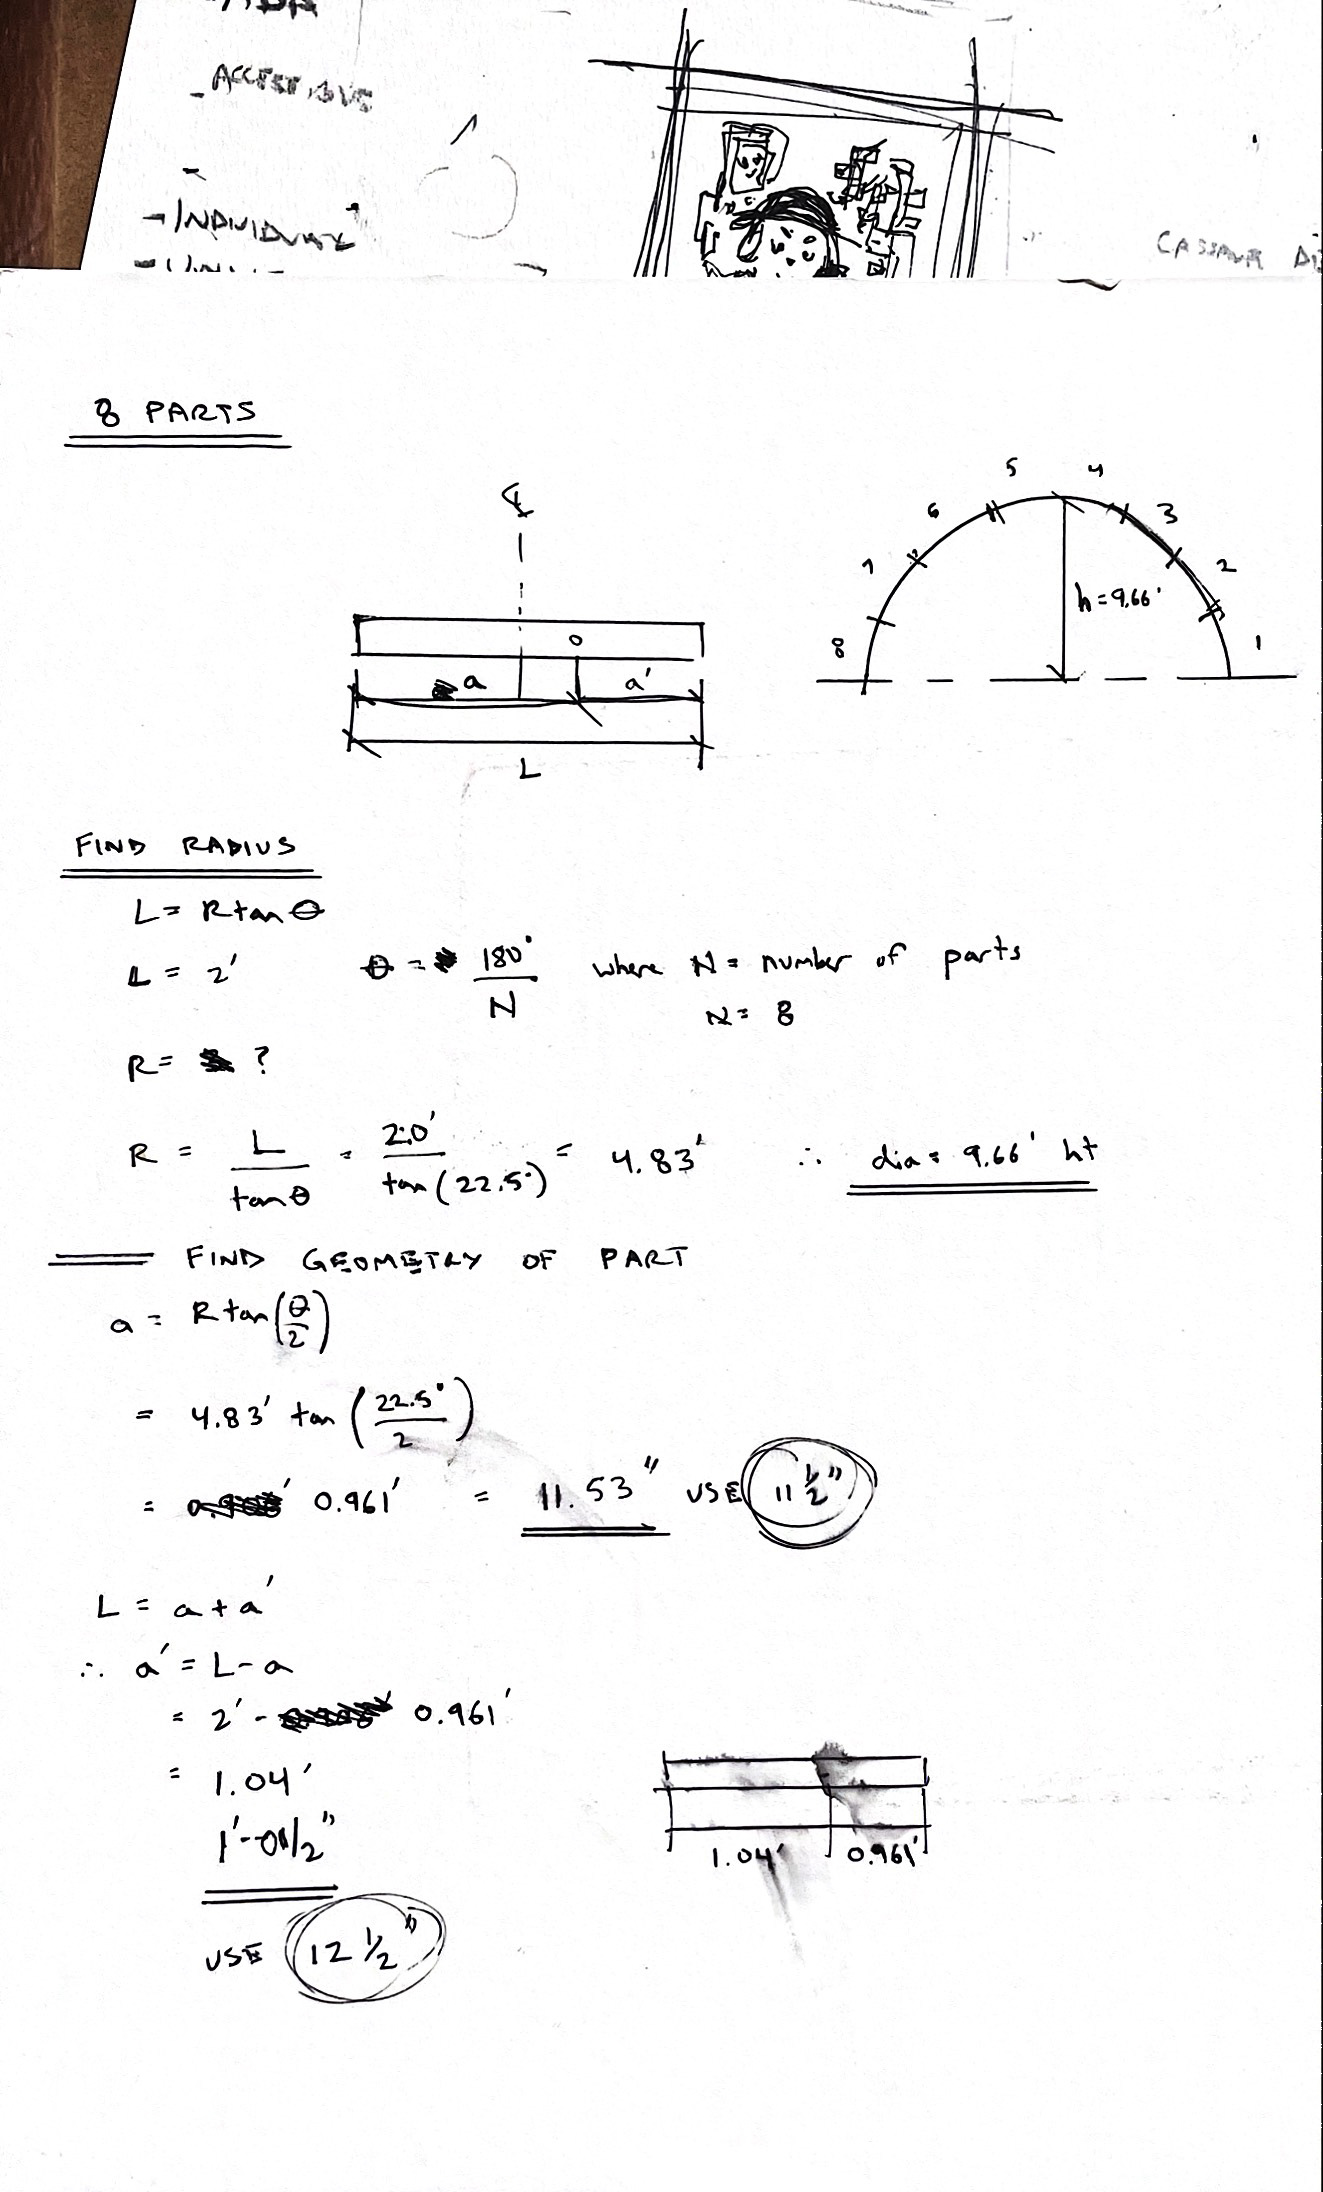 - INDIVIDUAL
8 PARTS
℄
o
a a'
L
8 7 6 5 4 3 2 1
h = 9.66'
FIND RADIUS
L = R tan θ
L = 2' θ = 180° / N where N = number of parts
N = 8
R = ?
R = L / tan θ = 2.0' / tan (22.5°) = 4.83' ∴ dia = 9.66' ht
FIND GEOMETRY OF PART
a = R tan (θ / 2)
= 4.83' tan (22.5° / 2)
= 0.961' = 11.53" USE 11 1/2"
L = a + a'
∴ a' = L - a
= 2' - 0.961'
= 1.04'
1'-0 1/2"
1.04' 0.961'
USE 12 1/2"